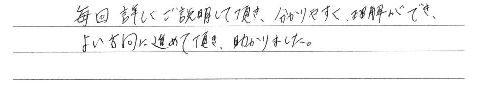 毎回詳しくご説明して頂き、分かりやすく、理解ができ、
よい方向に進めて頂き、助かりました。